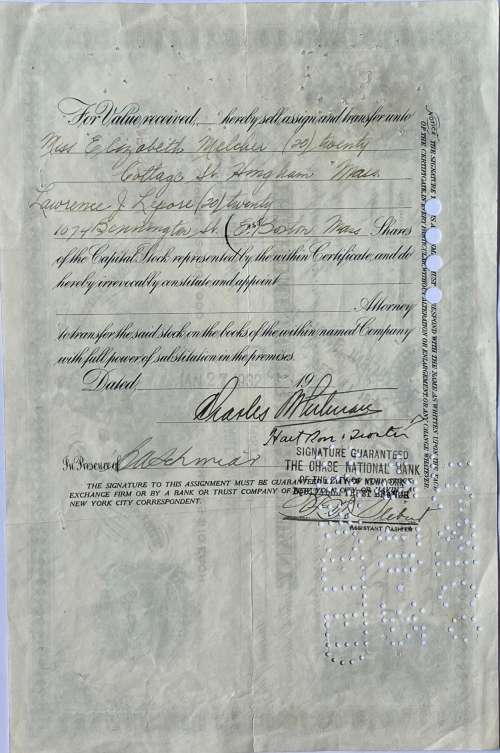 For Value received, hereby sell, assign and transfer unto
Miss Elizabeth Melcher (20) twenty
Cottage St. Hingham Mass
Lawrence J. Lepore (20) twenty
1074 Bennington St. (East Boston Mass Shares
of the Capital Stock represented by the within Certificate, and do
hereby irrevocably constitute and appoint
Attorney
to transfer the said stock on the books of the within named Company
with full power of substitution in the premises.
Dated 19
Charles
In Presence of
SIGNATURE GUARANTEED
THE CHASE NATIONAL BANK
OF THE CITY OF NEW YORK
ASSISTANT CASHIER
THE SIGNATURE TO THIS ASSIGNMENT MUST BE GUARANTEED
EXCHANGE FIRM OR BY A BANK OR TRUST COMPANY OF
NEW YORK CITY CORRESPONDENT.
Notice THE SIGNATURE MUST CORRESPOND WITH THE NAME AS WRITTEN UPON THE FACE
OF THE CERTIFICATE IN EVERY PARTICULAR, WITHOUT ALTERATION OR ENLARGEMENT OR ANY CHANGE WHATEVER.